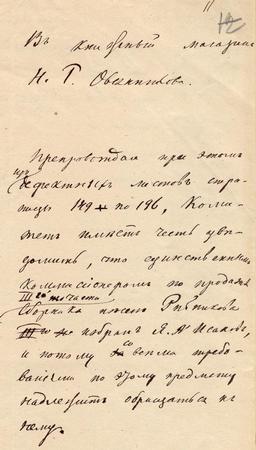 12
Въ книжный магазинъ
Н. Г. Овсянникова.
Препровождая при этомъ
изъ дефектныхъ листовъ стра-
ницы 149 по 196, Коми-
тетъ имѣетъ честь увѣ-
домить, что единственнымъ
коммиссіонеромъ по продажѣ
III го тома
Сборника пѣсенъ Рыбникова
избранъ Я. А. Исаковъ,
и потому со всѣми требо-
ваніями по этому предмету
надлежитъ обращаться къ
нему.